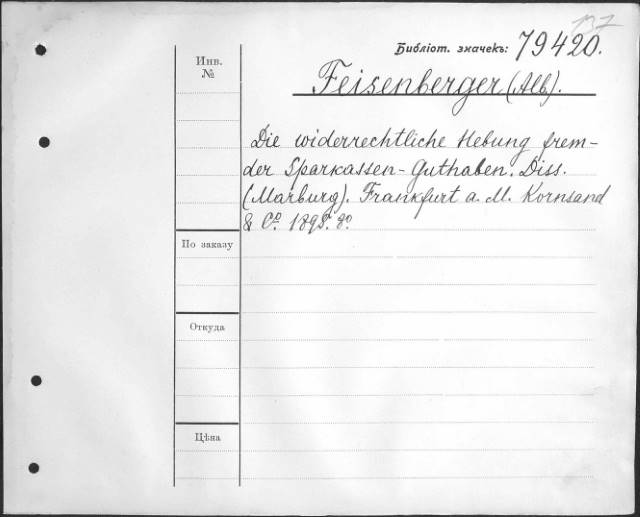 137
Библіот. значекъ: 79420.
Инв.
№
Feisenberger (Alb).
Die widerrechtliche Hebung frem-
der Sparkassen-Guthaben. Diss.
(Marburg). Frankfurt a. M. Kornsand
& Cº. 1895. 8º.
По заказу
Откуда
Цѣна